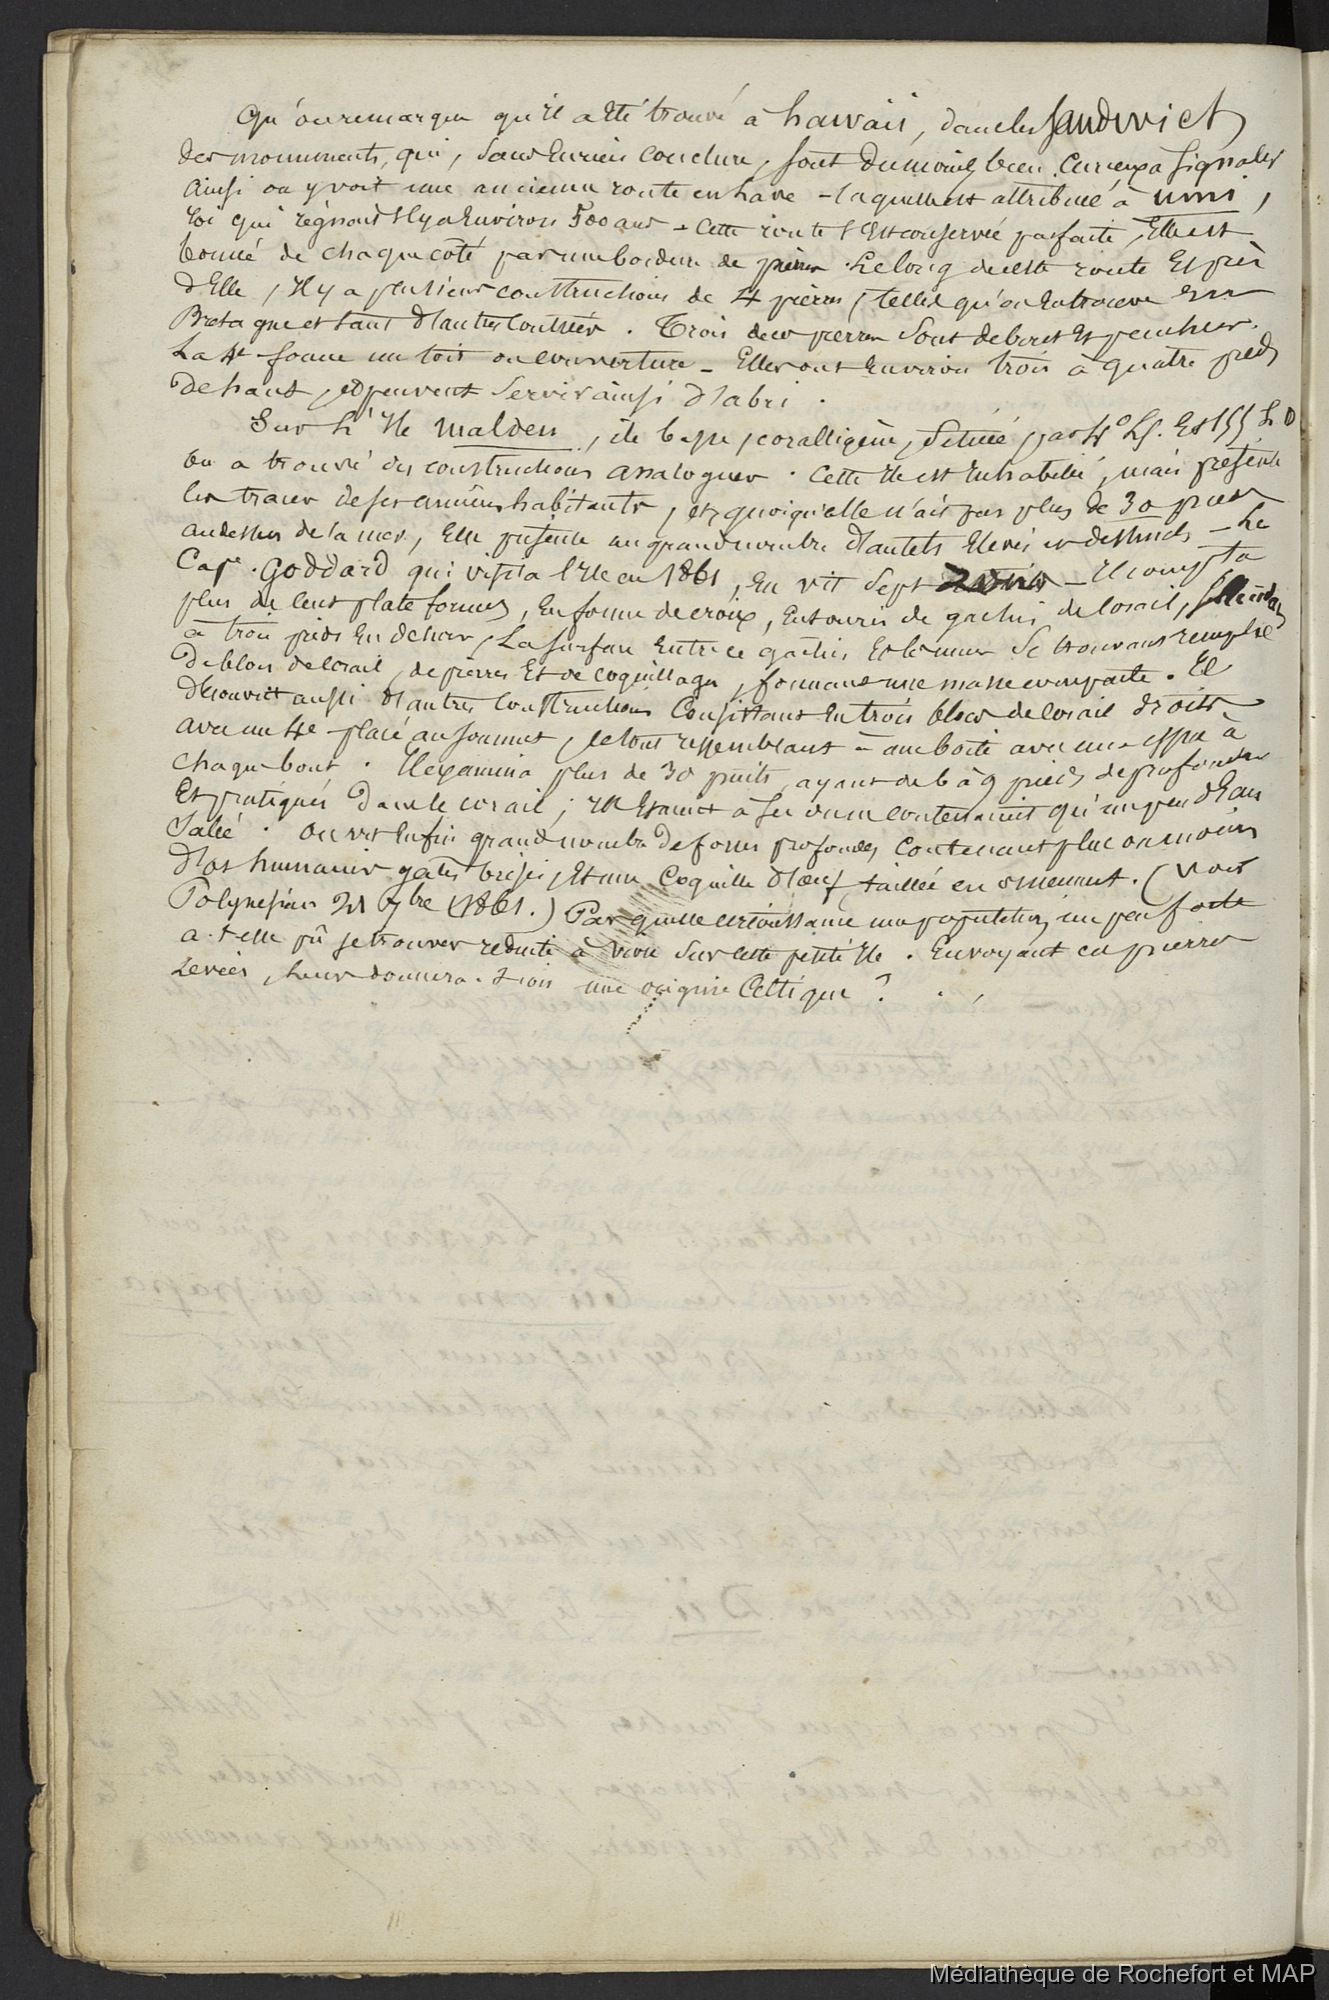 Qu'on remarque qu'il a été trouvé à hawaii, dans les Sandwich,
des monuments, qui, sans en rien conclure, sont du moins bien curieux à signaler
ainsi on y voit une ancienne route en lave - laquelle est attribuée à umi,
roi qui régnait il y a environ 500 ans - cette route est conservée parfaite, Elle est
bornée de chaque côté par une bordure de pierres. Le long de cette route et près
d'Elle, il y a plusieurs constructions de 4 pierres, telles qu'on en trouve en
Bretagne et tant d'autres contrées. Trois des pierres sont debout et penchées.
La 4e forme un toit ou couverture - Elles ont environ trois à quatre pieds
de haut, et peuvent servir ainsi d'abri.
Sur l'île malden, île basse, coralligène, située par 4° LS. Et 155 L O
on a trouvé des constructions analogues. Cette île est inhabitée, mais présente
les traces de ses anciens habitants, et, quoiqu'elle n'ait pas plus de 30 pieds
au dessus de la mer, Elle présente un grand nombre d'autels élevés - Le
Cape. Goddard qui visita l'île en 1861, en vit sept - il compta
plus de cent plate formes, en forme de croix, entourés de gachis de corail,
à trois pieds en dehors, La surface entre ce gachis et le mur se trouvant remplie
de blocs de corail, de pierres et de coquillages, formant une masse compacte. Il
découvrit aussi d'autres constructions consistant en trois blocs de corail droits
avec un 4e placé au sommet, le tout ressemblant à une boîte avec une à
chaque bout. Il examina plus de 30 puits, ayant de 6 à 9 pieds de profondeur
Et pratiqués dans le corail; ils étaient à sec ou ne contenaient qu'un peu d'eau
salée. On vit enfin grand nombre de fosses profondes contenant plus ou moins
d'os humains gatés brisés, et une coquille d'oeuf taillée en ornement. (Voir
Polynesian 21 7bre 1861.) Par quelle circonstance une population un peu forte
a-t-elle pû se trouver réduite à vivre sur cette petite île. En voyant ces pierres
levées, leur donnera-t-on une origine Celtique?
Médiathèque de Rochefort et MAP